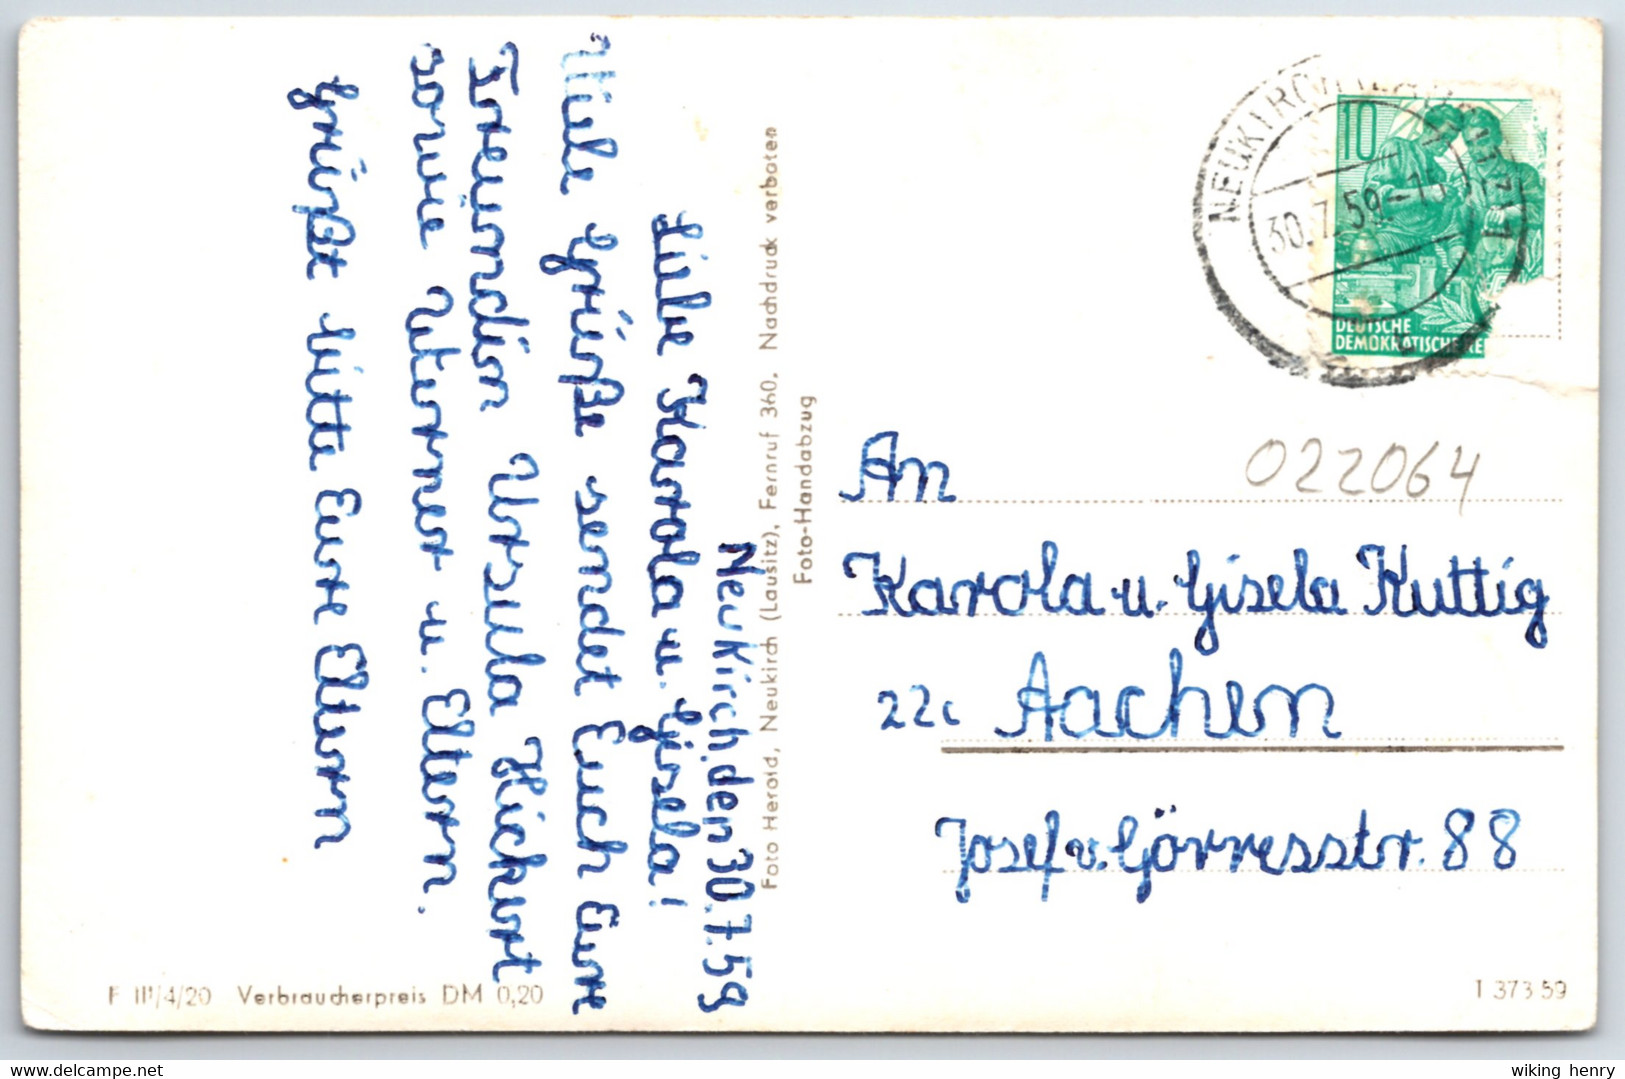 Neukirch, den 30.7.59
Liebe Karola u. Gisela!
Viele Grüße sendet Euch Eure
Freundin Ursula
sowie Werner u. Eltern.
Grüßt bitte Eure Eltern
Foto Herold, Neukirch (Lausitz), Fernruf 360. Nachdruck verboten
Foto-Handabzug
F III/4/20 Verbraucherpreis DM 0,20
NEUKIRCH
30.7.59
10
DEUTSCHE
DEMOKRATISCHE RE
022064
An
Karola u. Gisela Kuttig
22c Aachen
Josef v. Görresstr. 88
T 373 59
wiking henry